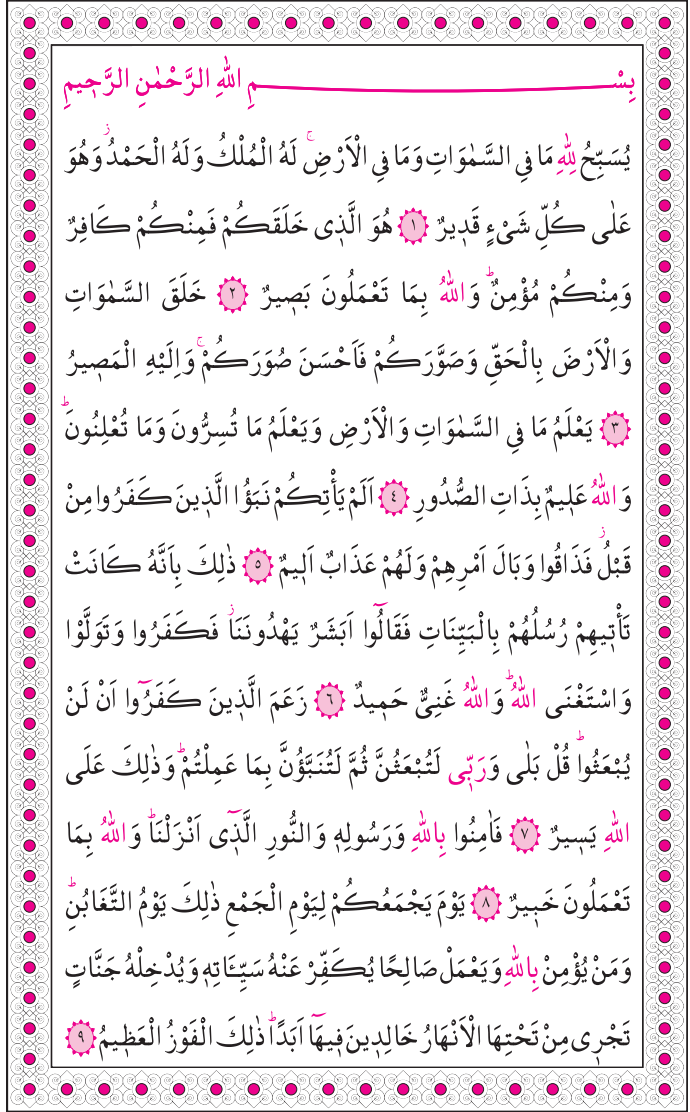 بِسْمِ اللّٰهِ الرَّحْمٰنِ الرَّح۪يمِ
يُسَبِّحُ لِلّٰهِ مَا فِي السَّمٰوَاتِ وَمَا فِي الْاَرْضِۚ لَهُ الْمُلْكُ وَلَهُ الْحَمْدُۘ وَهُوَ
عَلٰى كُلِّ شَيْءٍ قَد۪يرٌ ﴿١﴾ هُوَ الَّذ۪ى خَلَقَكُمْ فَمِنْكُمْ كَافِرٌ
وَمِنْكُمْ مُؤْمِنٌۜ وَاللّٰهُ بِمَا تَعْمَلُونَ بَص۪يرٌ ﴿٢﴾ خَلَقَ السَّمٰوَاتِ
وَالْاَرْضَ بِالْحَقِّ وَصَوَّرَكُمْ فَاَحْسَنَ صُوَرَكُمْۚ وَاِلَيْهِ الْمَص۪يرُ
﴿٣﴾ يَعْلَمُ مَا فِي السَّمٰوَاتِ وَالْاَرْضِ وَيَعْلَمُ مَا تُسِرُّونَ وَمَا تُعْلِنُونَۜ
وَاللّٰهُ عَل۪يمٌ بِذَاتِ الصُّدُورِ ﴿٤﴾ اَلَمْ يَأْتِكُمْ نَبَؤُا الَّذ۪ينَ كَفَرُوا مِنْ
قَبْلُۘ فَذَاقُوا وَبَالَ اَمْرِهِمْ وَلَهُمْ عَذَابٌ اَل۪يمٌ ﴿٥﴾ ذٰلِكَ بِاَنَّهُ كَانَتْ
تَأْت۪يهِمْ رُسُلُهُمْ بِالْبَيِّنَاتِ فَقَالُٓوا اَبَشَرٌ يَهْدُونَنَاۘ فَكَفَرُوا وَتَوَلَّوْا
وَاسْتَغْنَى اللّٰهُۜ وَاللّٰهُ غَنِىٌّ حَم۪يدٌ ﴿٦﴾ زَعَمَ الَّذ۪ينَ كَفَرُٓوا اَنْ لَنْ
يُبْعَثُواۜ قُلْ بَلٰى وَرَبّ۪ى لَتُبْعَثُنَّ ثُمَّ لَتُنَبَّؤُنَّ بِمَا عَمِلْتُمْۜ وَذٰلِكَ عَلَى
اللّٰهِ يَس۪يرٌ ﴿٧﴾ فَاٰمِنُوا بِاللّٰهِ وَرَسُولِه۪ وَالنُّورِ الَّذ۪ٓى اَنْزَلْنَاۜ وَاللّٰهُ بِمَا
تَعْمَلُونَ خَب۪يرٌ ﴿٨﴾ يَوْمَ يَجْمَعُكُمْ لِيَوْمِ الْجَمْعِ ذٰلِكَ يَوْمُ التَّغَابُنِۜ
وَمَنْ يُؤْمِنْ بِاللّٰهِ وَيَعْمَلْ صَالِحًا يُكَفِّرْ عَنْهُ سَيِّـَٔاتِه۪ وَيُدْخِلْهُ جَنَّاتٍ
تَجْر۪ى مِنْ تَحْتِهَا الْاَنْهَارُ خَالِد۪ينَ ف۪يهَٓا اَبَدًاۜ ذٰلِكَ الْفَوْزُ الْعَظ۪يمُ ﴿٩﴾